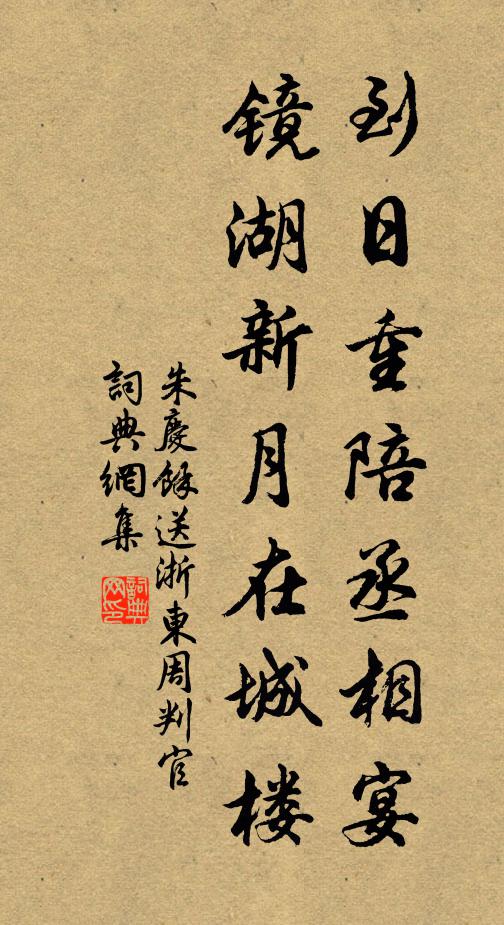 到日重陪丞相宴
镜湖新月在城楼
朱慶餘送浙東周判官
詞典網集
詞典網印